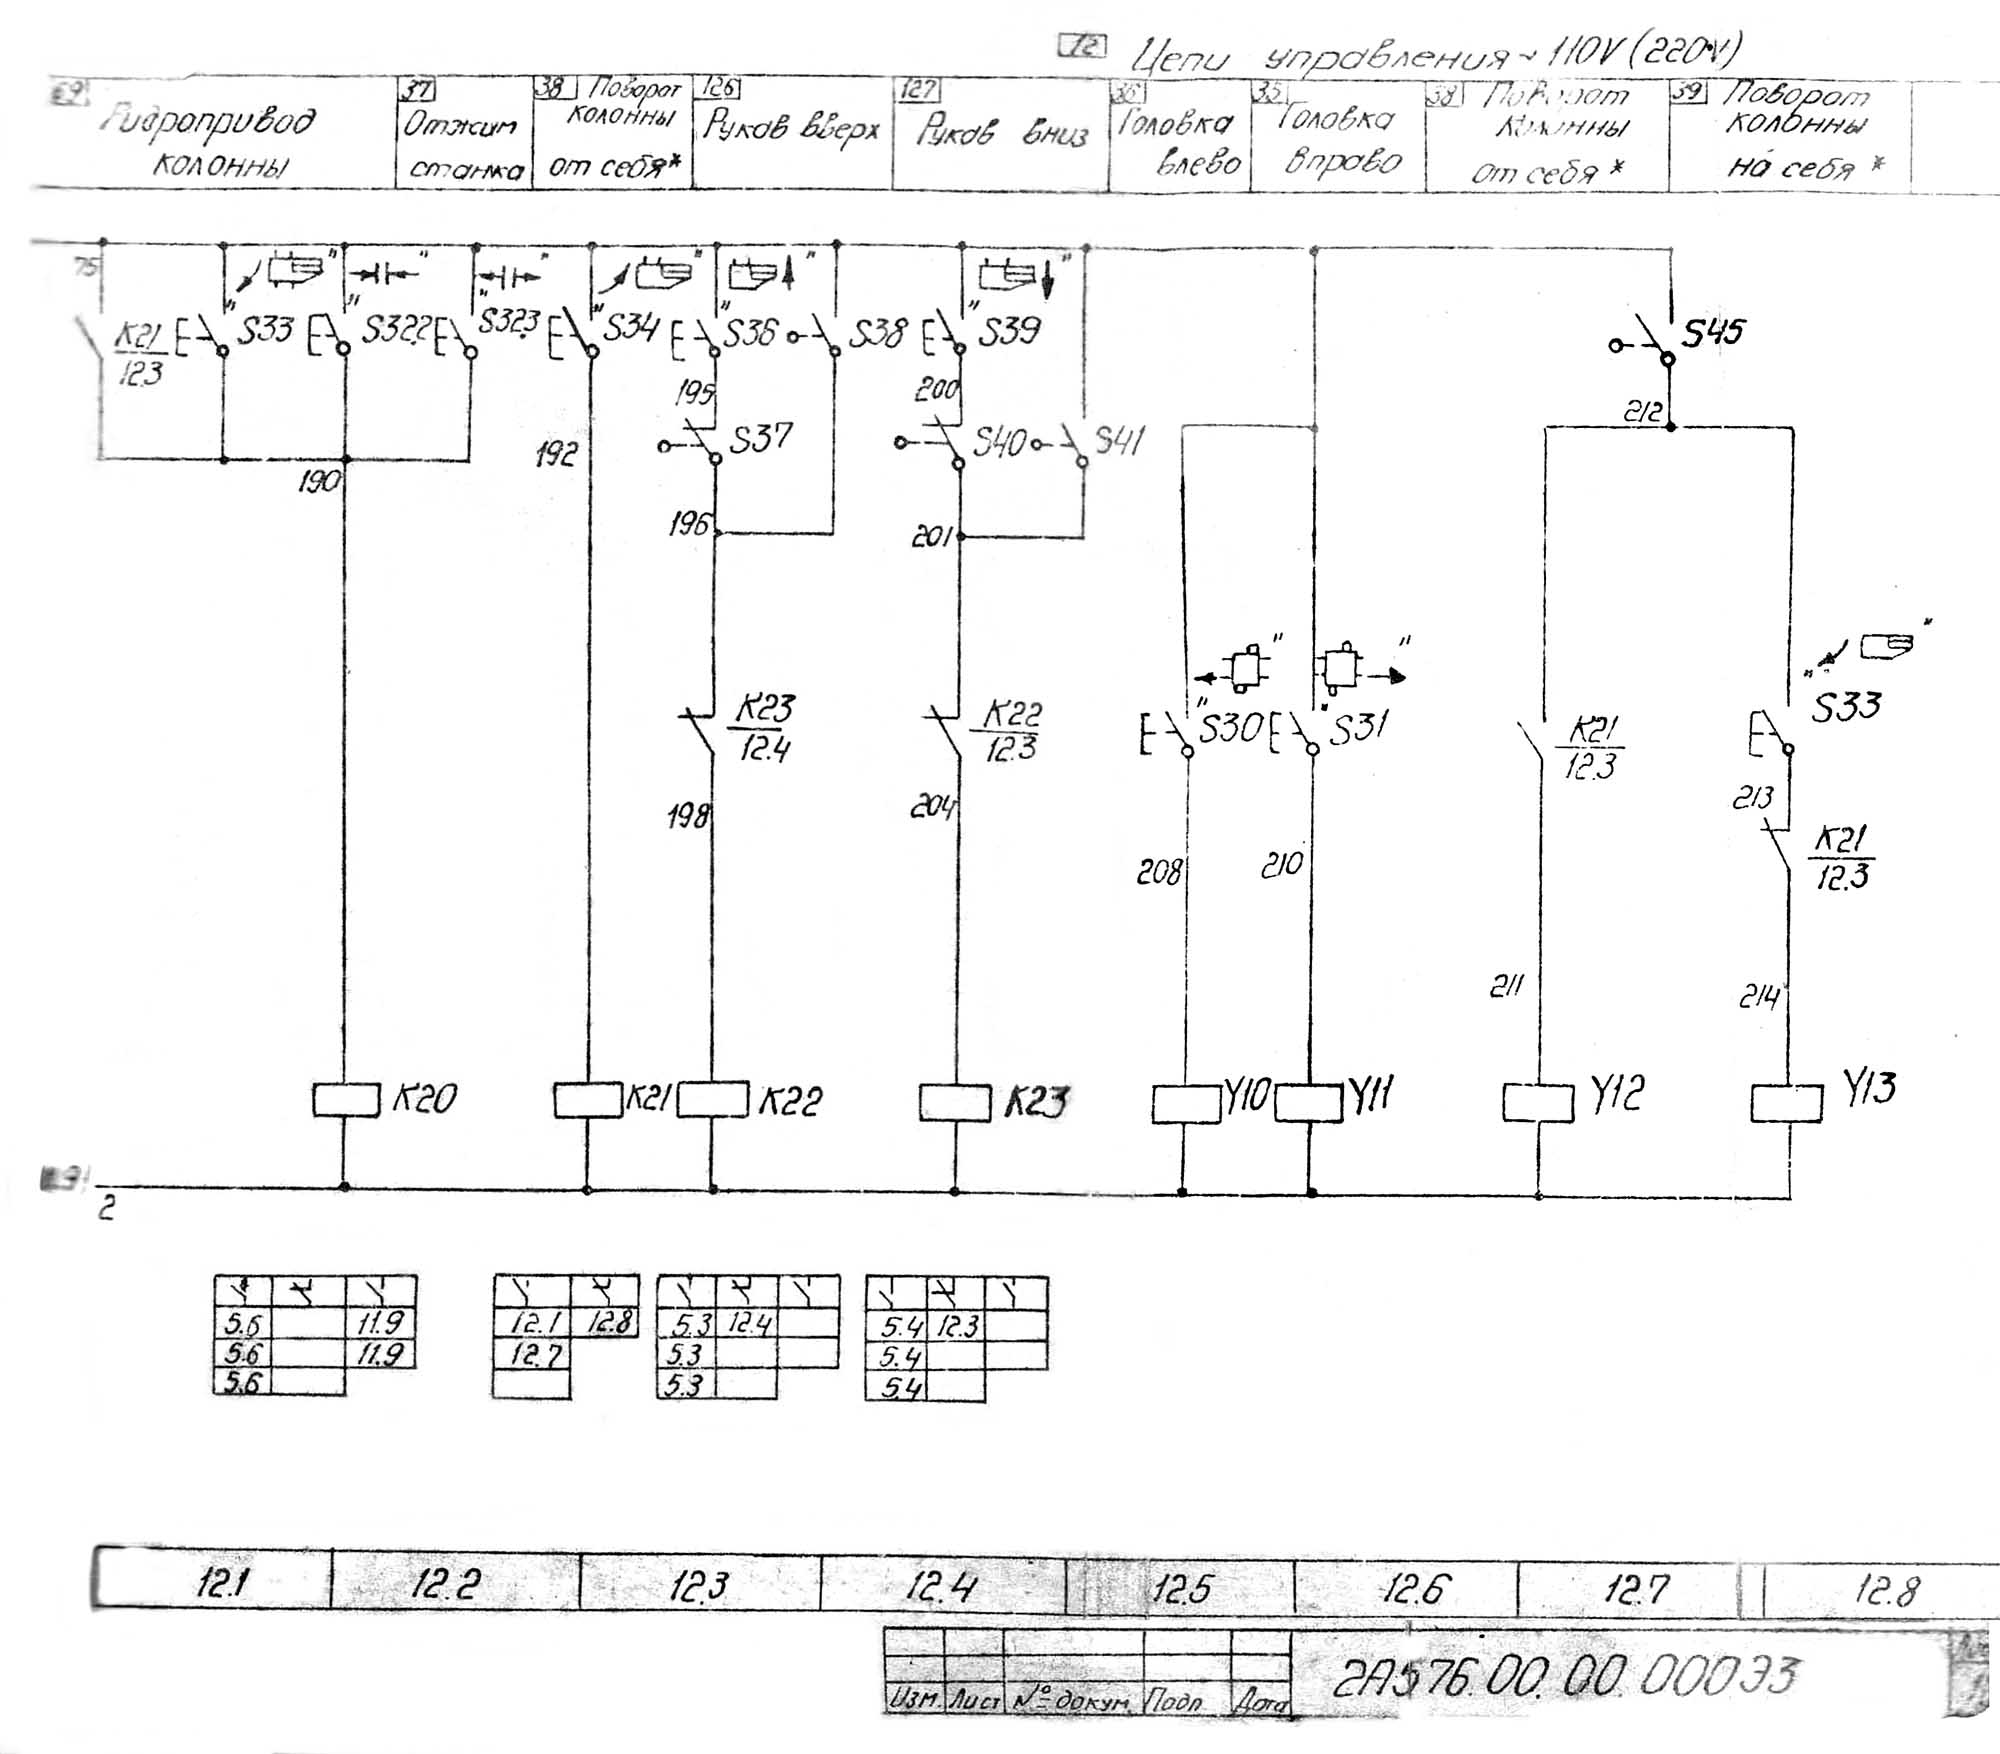 12 Цепи управления ~ 110V (220V)
69 Гидропривод
колонны
37
Отжим
станка
38 Поворот
колонны
от себя*
126
Рукав вверх
127
Рукав вниз
36
Головка
влево
35
Головка
вправо
38 Поворот
колонны
от себя *
39 Поворот
колонны
на себя *
75
K21
12.3
S33
S32.2
S32.3
S34
S36
S38
S39
S45
195
200
212
192
S37
S40
S41
190
196
201
K23
12.4
K22
12.3
S30
S31
K21
12.3
S33
198
204
208
210
213
K21
12.3
211
214
K20
K21
K22
K23
Y10
Y11
Y12
Y13
2
5.6 11.9
5.6 11.9
5.6
12.1 12.8
12.7
5.3 12.4
5.3
5.3
5.4 12.3
5.4
5.4
12.1 12.2 12.3 12.4 12.5 12.6 12.7 12.8
2А576.00.00.000ЭЗ
Изм. Лист № докум. Подп. Дата